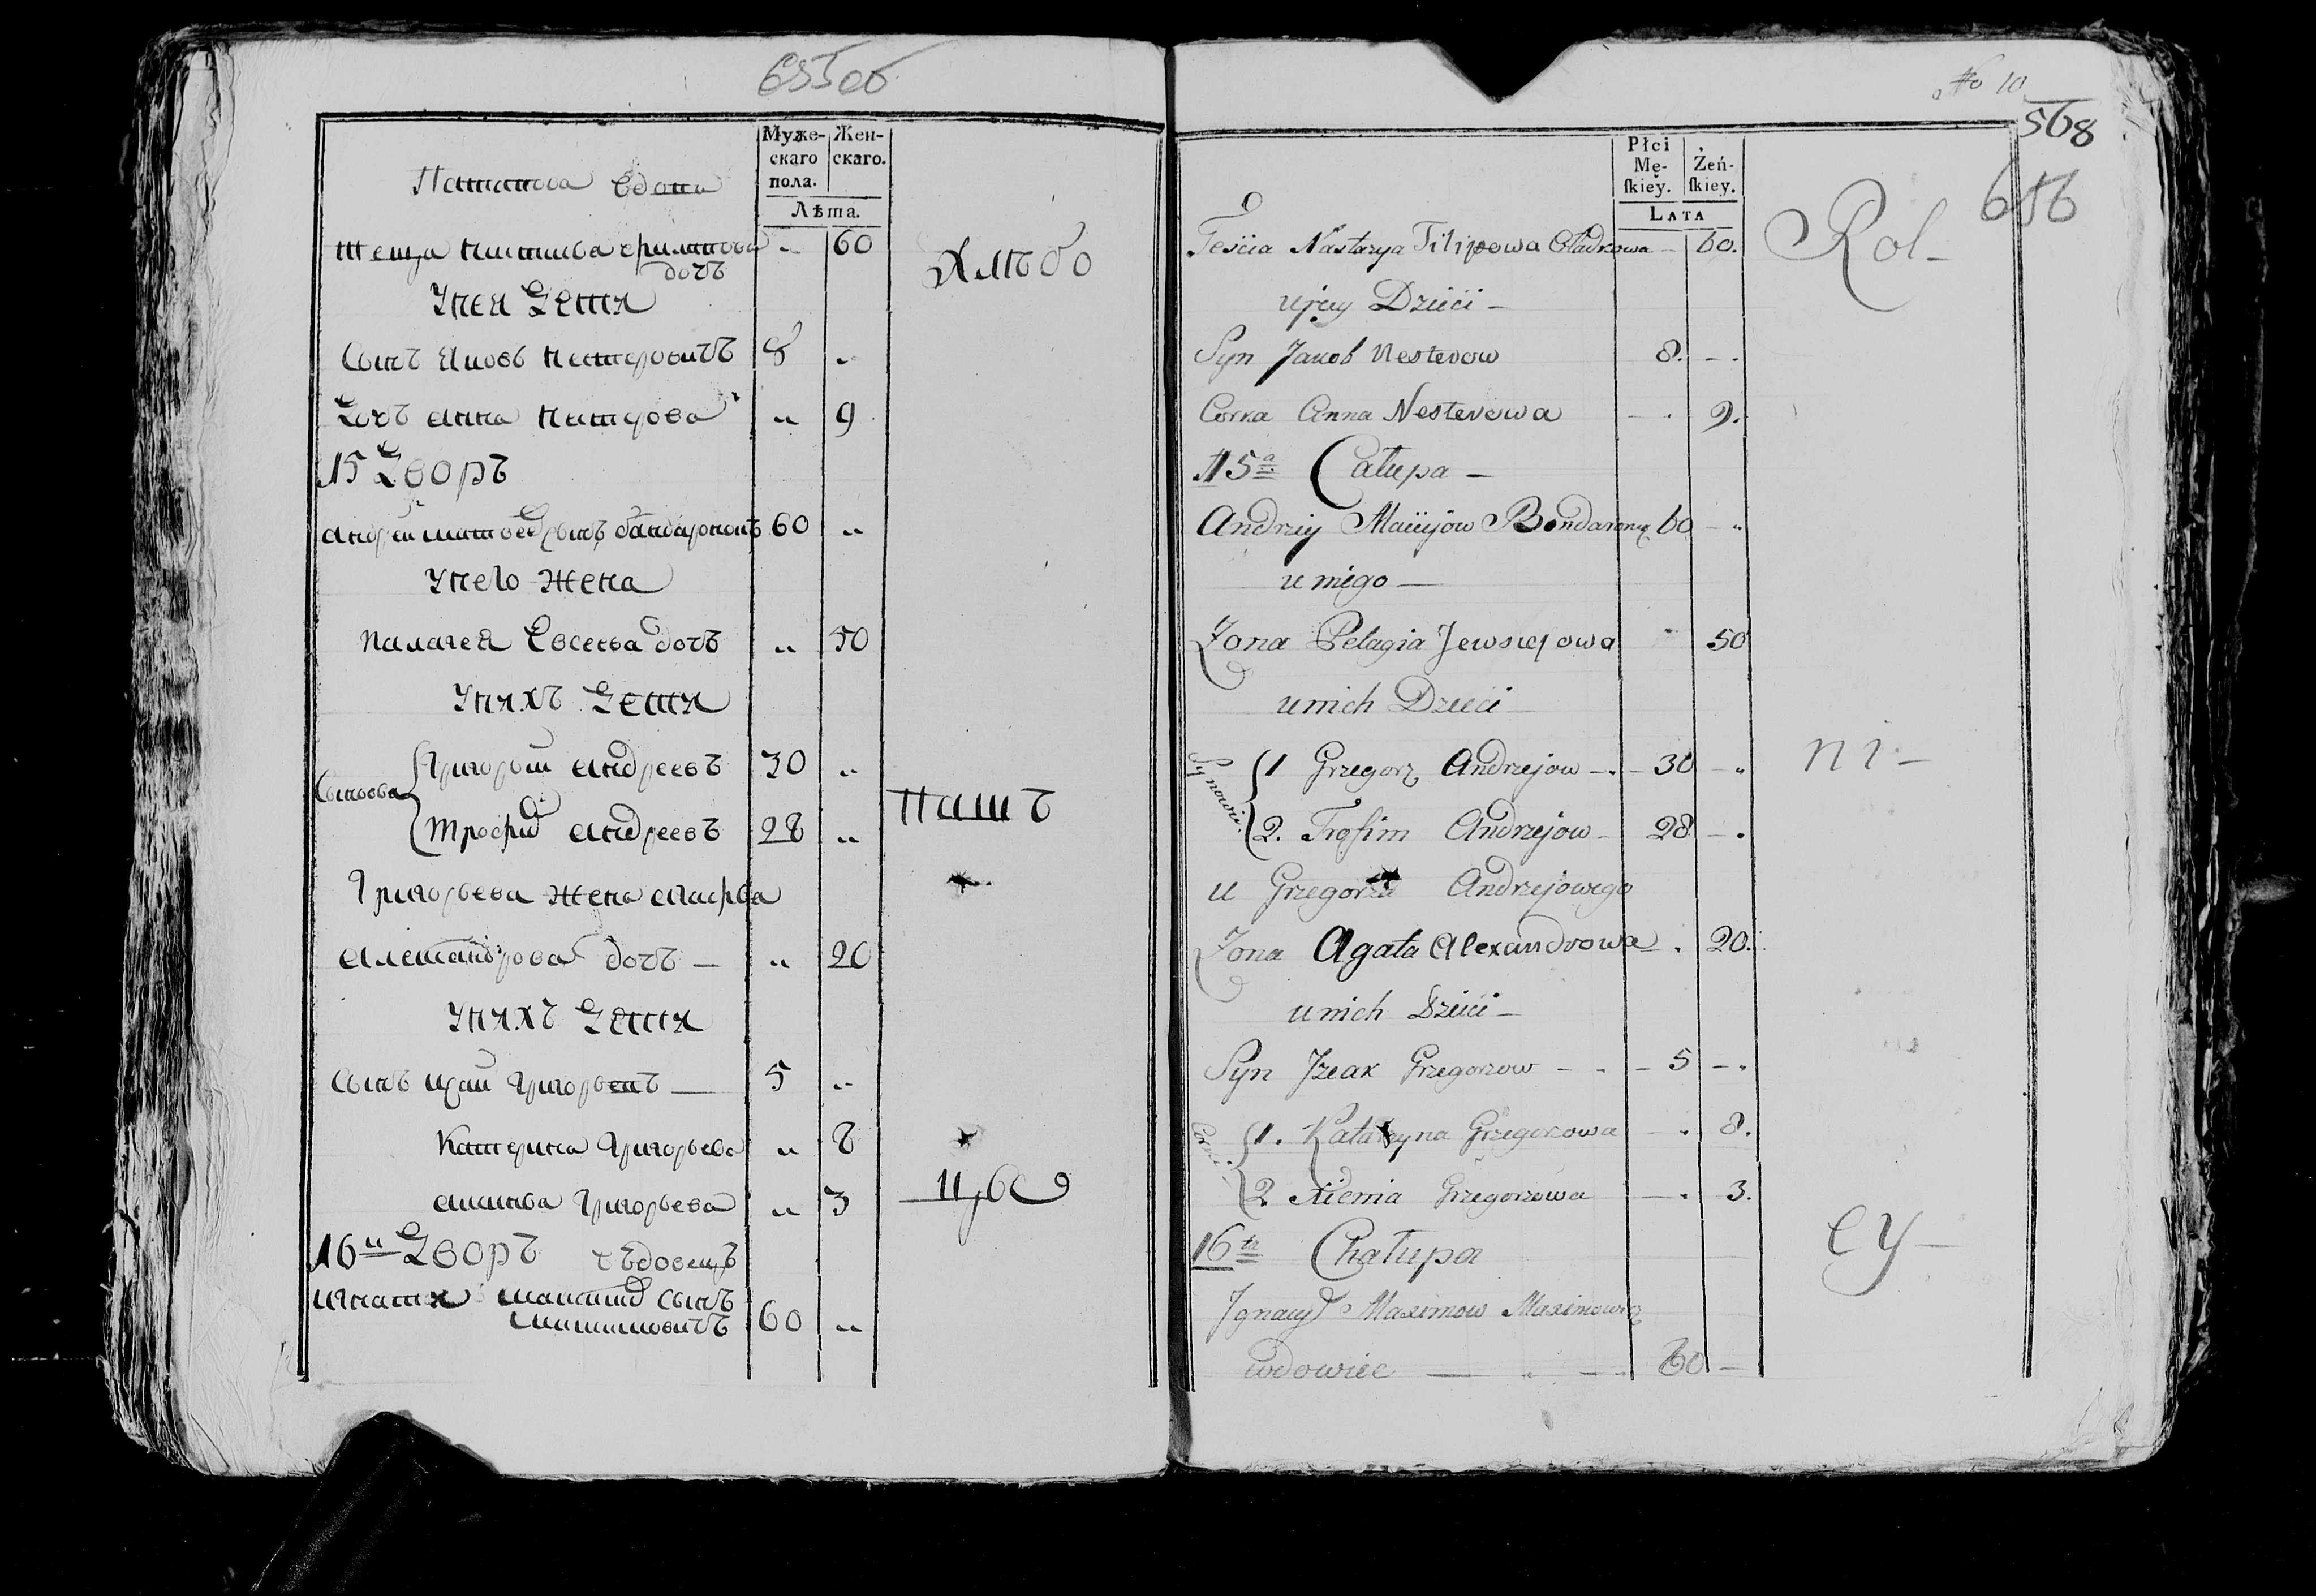 655 об
Муже-
скаго
пола.
Жен-
скаго.
Лѣта.
вдова
теща филипова 60
дочь
Унея Дети
Хлѣбо
Сынъ Яковъ Нестеровичъ 8 „
Дочь анна Нестерова „ 9
15 Дворъ
андрей матвеевъ сынъ бандаронокъ 60 „
Унего жена
палагея Евсеева дочь „ 50
Унихъ Дети
Сыновья
Григорий андреевъ 30 „
трофим андреевъ 28 „
пашъ
Григорьева жена агафья
александрова дочь — „ 20
Унихъ Дети
Сынъ исай Григорьевъ — 5 „
Катерина Григорьева „ 8
Григорьева „ 3
цы
16й Дворъ вдовецъ
игнатий максимов сынъ
60 „
No 10
568
656
Płci
Mę-
skiey.
Żeń-
skiey.
LATA
Teścia Nastazya Filipowa — 60.
Rol-
u jey Dzieci —
Syn Jakob Nesterow 8. — .
Corka Anna Nesterowa — . 9.
15a Całupa —
Andrzey Maciejow Bondaronek 60 — „
u niego —
Żona Pelagia Jewsiejowa 50
u nich Dzieci —
Synowie.
1 Grzegorz Andrzejow — . — 30 — „
ni-
2. Trofim Andrzejow — 28 — .
u Grzegorza Andrzejowego
Żona Agata Alexandrowa — . 20.
u nich Dzieci —
Syn Jzaak Grzegorzow — . — 5 — .
Corki
1. Katarzyna Grzegorzowa — . 8.
2 Xienia Grzegorzowa — . 3.
16ta Chałupa
cy-
Jgnacy Maximow Maximowicz
wdowiec — 60 —